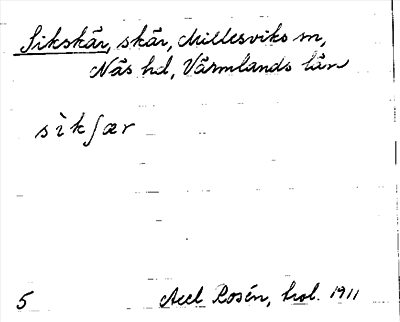 Sikskär, skär, Millesviks sn,
Näs hd, Värmlands län
sìkʃær
5 Axel Rosén, kol. 1911